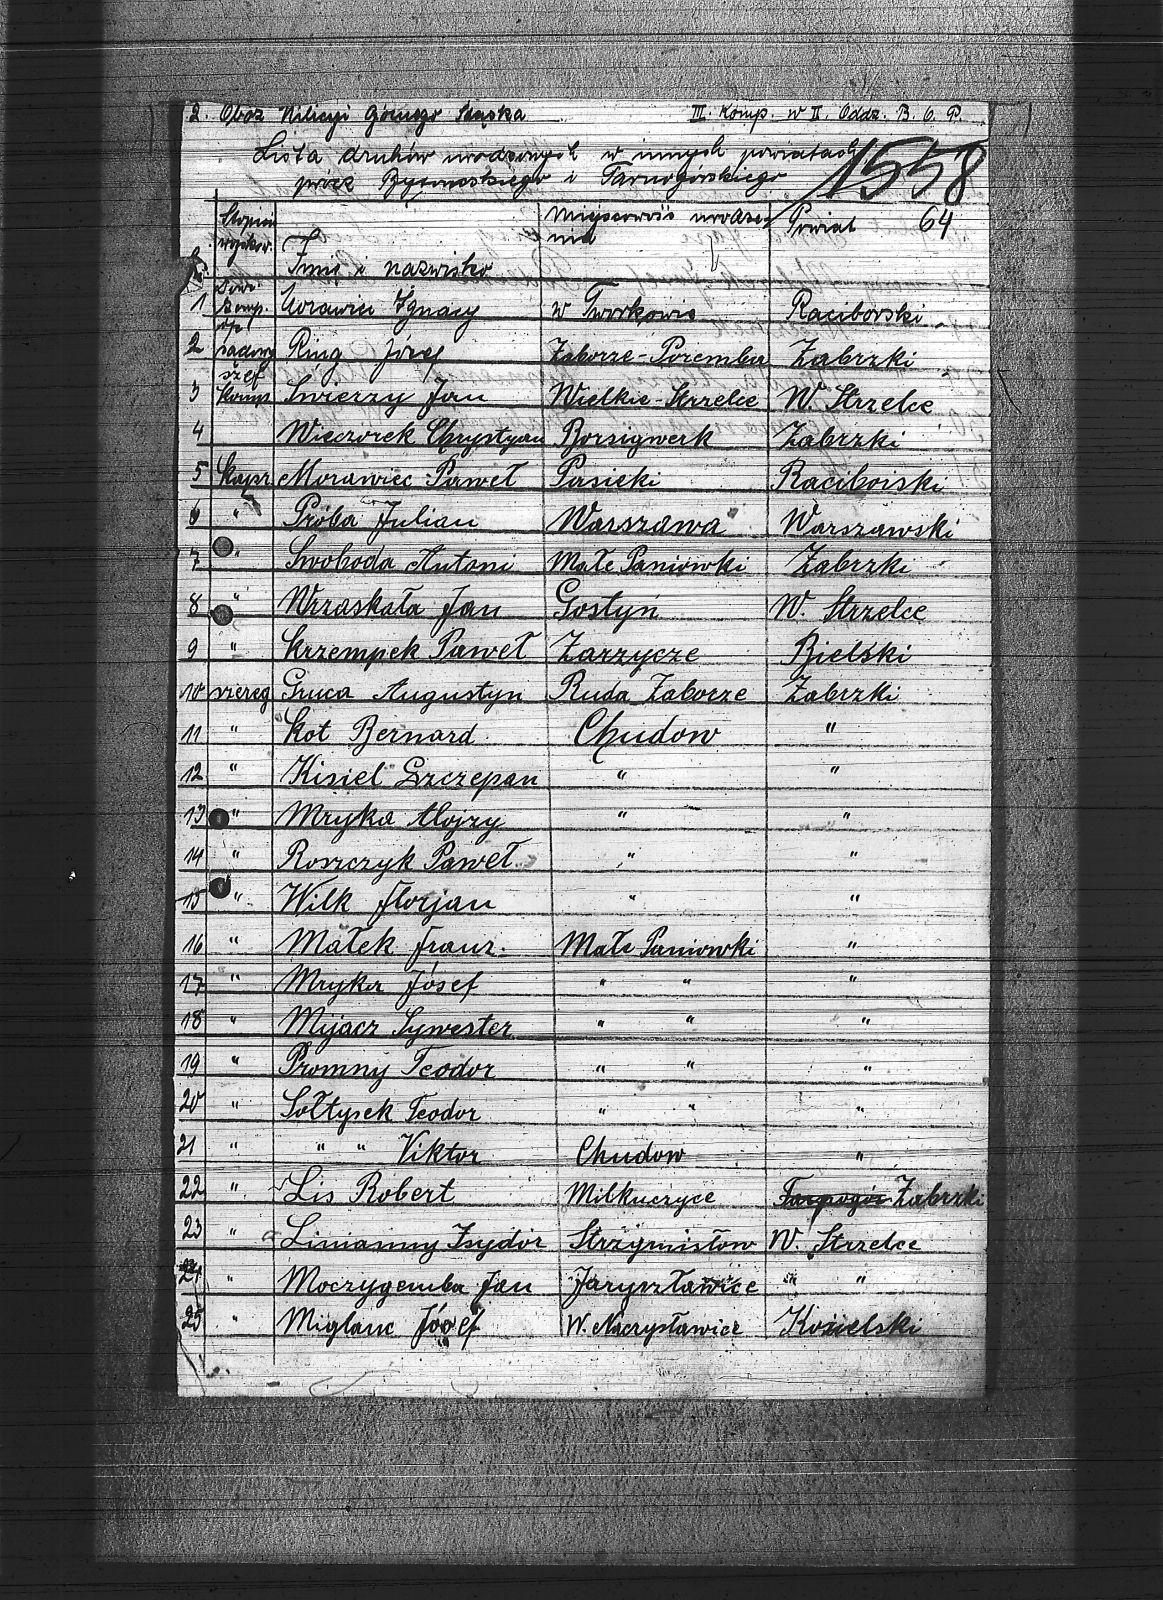 2. Obóz Milicyi Górnego Śląska III. Komp. w II. Oddz. B. G. P.
Lista druhów urodzonych w innych powiatach
prócz Bytomskiego i Tarnogorskiego
1558
64
Stopień wojskow. Imię i nazwisko Miejscowość urodzenia Powiat
1 Dow. Komp. Morawiec Ignacy w Tworkowie Raciborski
2 Ring Józef Zaborze-Poremba Zabrzki
3 szef Komp. Swierzy Jan Wielkie-Strzelce W. Strzelce
4 Wieczorek Chrystyan Borsigwerk Zabrzki
5 Kapr. Morawiec Paweł Pasieki Raciborski
6 " Próba Julian Warszawa Warszawski
7 " Swoboda Antoni Małe Paniowki Zabrzki
8 " Wraskała Jan Gostyń W. Strzelce
9 " Krzempek Paweł Zarzycze Bielski
10 szereg Gruca Augustyn Ruda Zaborze Zabrzki
11 " Kot Bernard Chudow "
12 " Kisiel Szczepan " "
13 " Mryka Alojzy " "
14 " Roszczyk Paweł " "
15 " Wilk Florjan " "
16 " Małek Franz. Małe Paniowki "
17 " Mryka Jósef " " "
18 " Mijacz Sywester " " "
19 " Promny Teodor " " "
20 " Sołtysek Teodor " " "
21 " " " Viktor Chudow "
22 " Lis Robert Milkuczyce Zabrzki
23 " Lisiasnny Isydor Strzymisłow W. Strzelce
24 " Moczygemba Jan Jaryszławice " "
25 " Miglanc Józef W. Naczysławice Kozielski